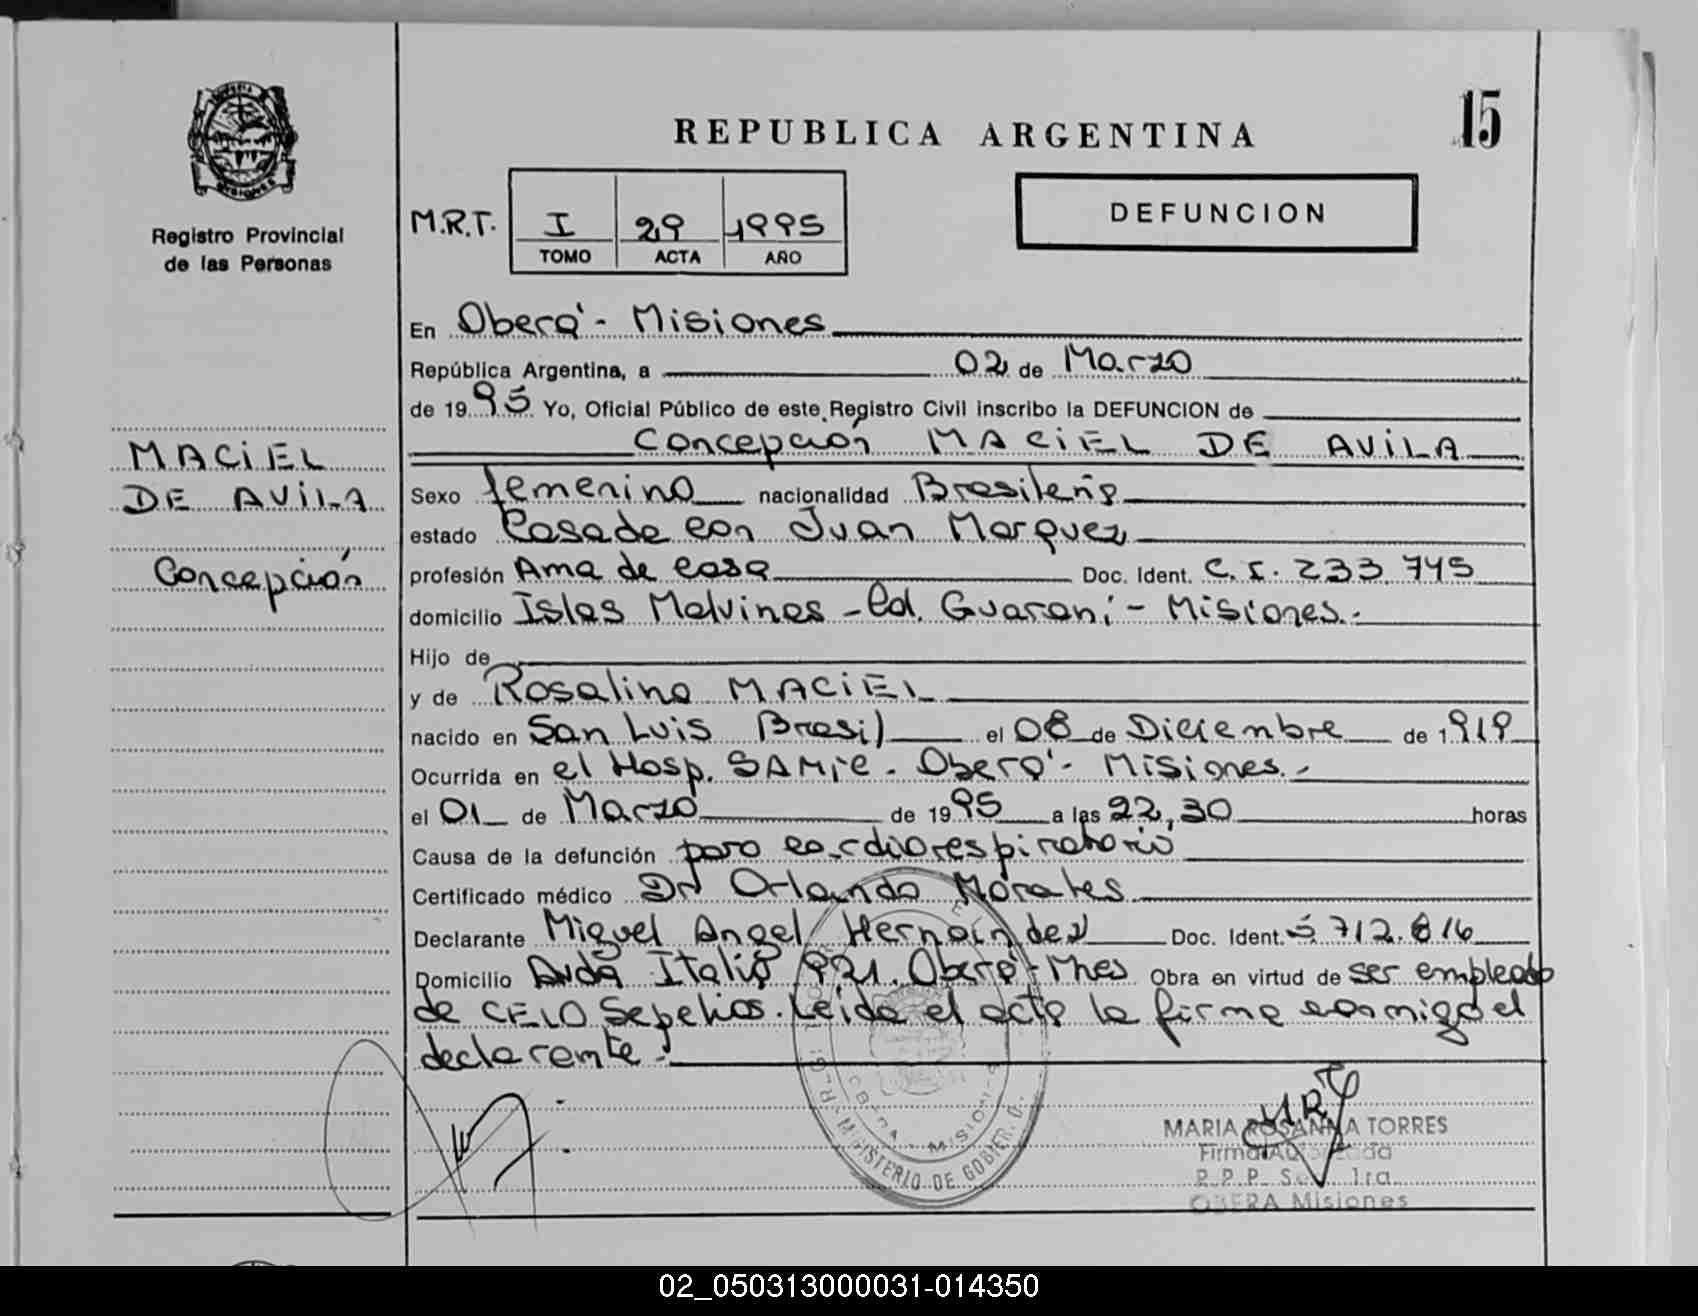 REPUBLICA ARGENTINA
15
Registro Provincial
de las Personas
M.R.T. I 29 1995
TOMO ACTA AÑO
DEFUNCION
En Oberá - Misiones
República Argentina, a 02 de Marzo
de 1995 Yo, Oficial Público de este Registro Civil inscribo la DEFUNCION de
Concepción MACIEL DE AVILA
MACIEL
DE AVILA
Concepción
Sexo femenino nacionalidad Brasileña
estado Casada con Juan Marquez
profesión Ama de casa Doc. Ident. C.I. 233.745
domicilio Islas Malvinas - Cd. Guaraní - Misiones.-
Hijo de
y de Rosalina MACIEL
nacido en San Luis Brasil el 08 de Diciembre de 1919
Ocurrida en el Hosp. SAMIC - Oberá - Misiones.-
el 01 de Marzo de 1995 a las 22,30 horas
Causa de la defunción paro cardiorespiratorio
Certificado médico Dr Orlando Morales
Declarante Miguel Angel Hernández Doc. Ident. 5.712.816
Domicilio Avda Italia 921. Oberá - Mnes Obra en virtud de ser empleado
de CELO Sepelios. Leida el acta la firma conmigo el
declarante.-
MINISTERIO DE GOBIER.
OBERA - MISIONES
MARIA ROSANNA TORRES
Firma Autorizada
R.P.P. Sec. 1ra.
OBERA Misiones
02_050313000031-014350